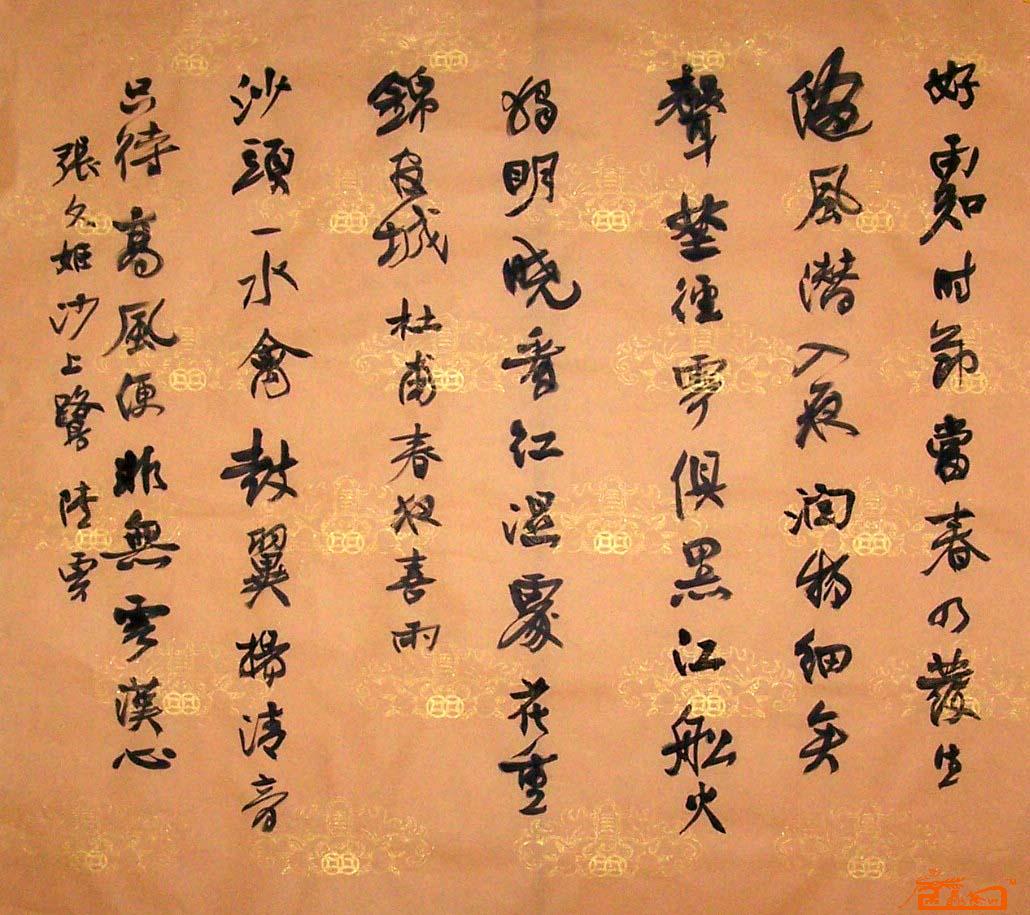 好雨知时節當春乃發生
隨風潜入夜润物细无
聲埜徑雲俱黑江舩火
獨明晓看红濕處花重
錦官城 杜甫春夜喜雨
沙頭一水禽鼓翼揚清音
只待高風便非無雲漢心
張文姬沙上鷺 陸